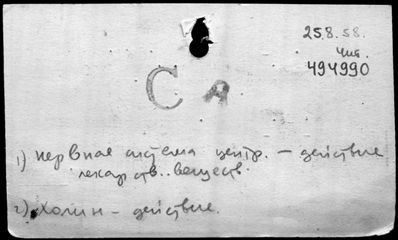 25.8.58.
Чит.
494990
С А
1) нервная система центр. — действие
лекарств. веществ.
2) холин — действие.